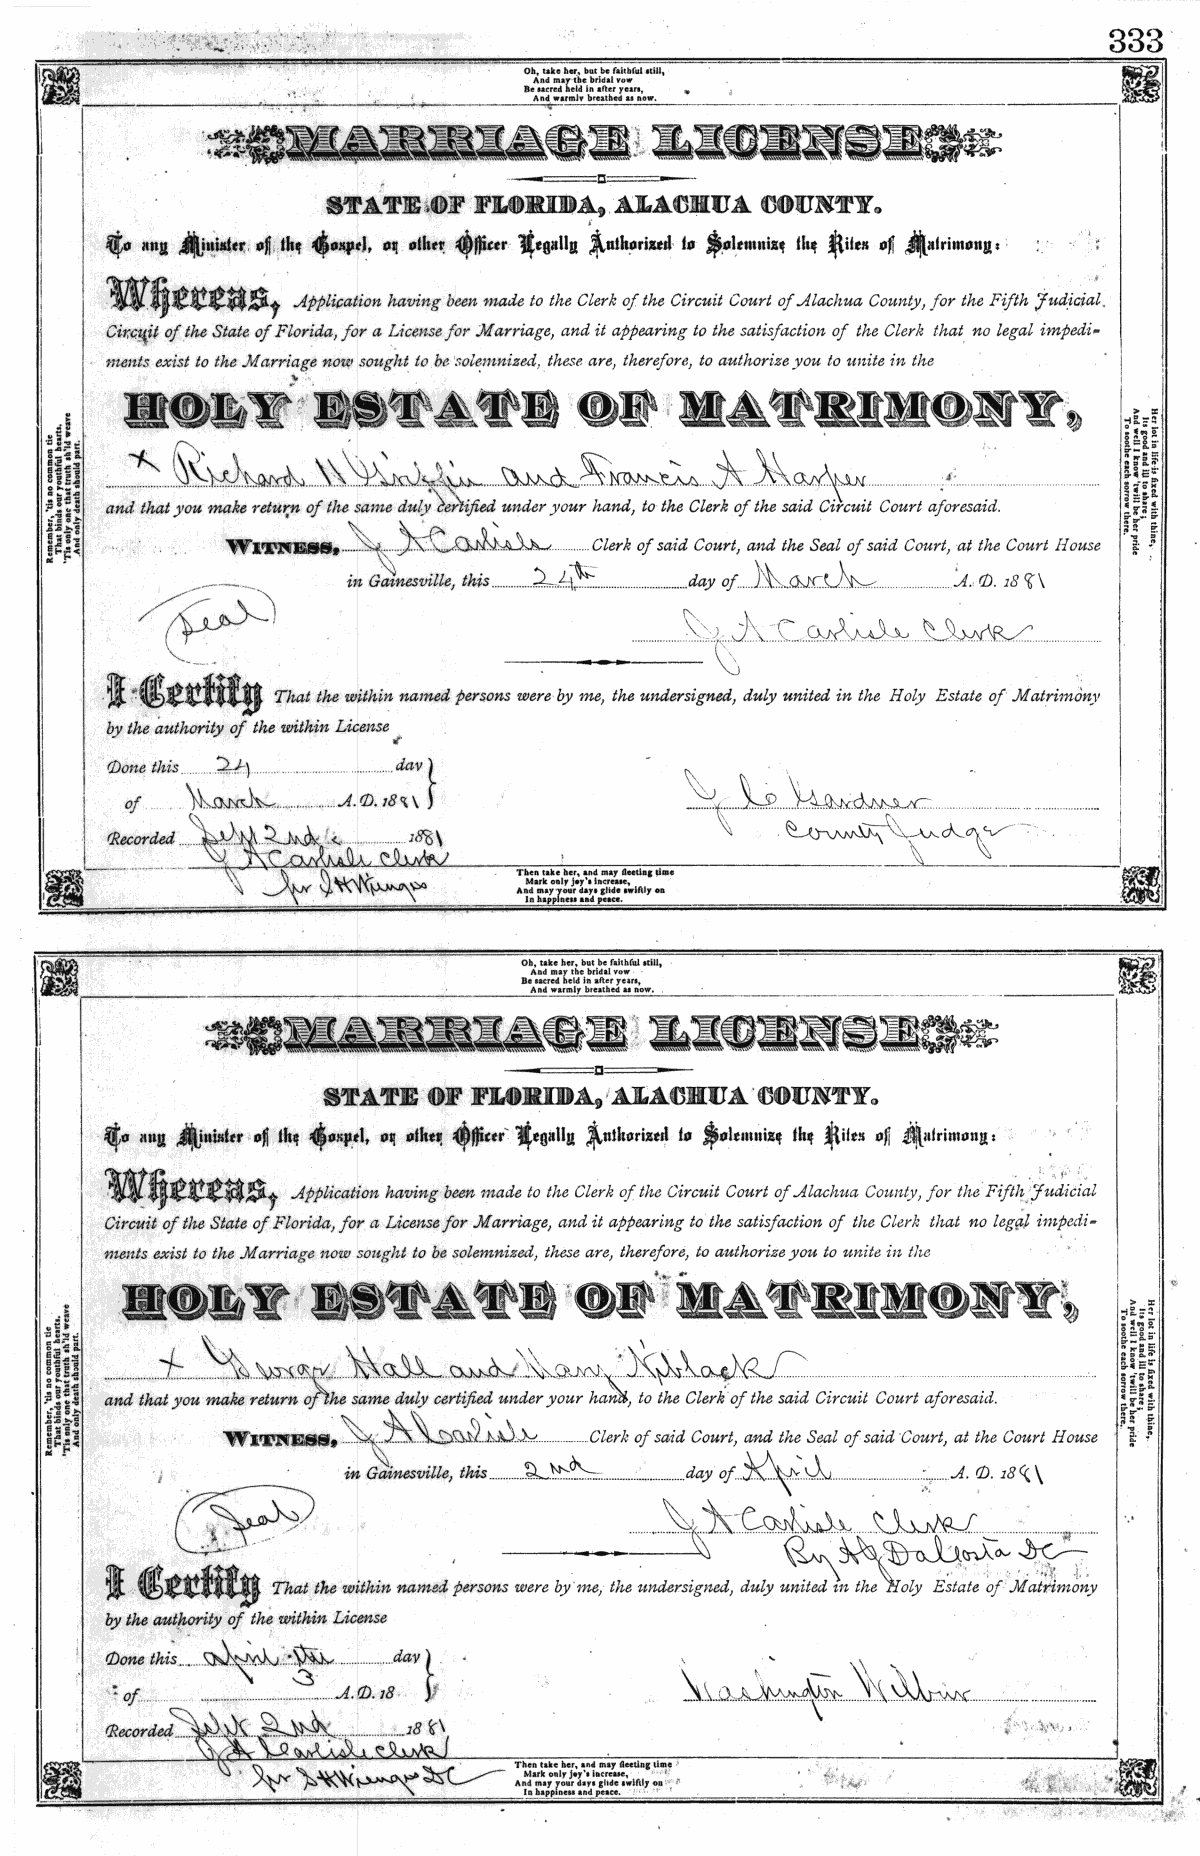 333
Oh, take her, but be faithful still,
And may the bridal vow
Be sacred held in after years,
And warmly breathed as now.
MARRIAGE LICENSE
STATE OF FLORIDA, ALACHUA COUNTY.
To any Minister of the Gospel, or other Officer Legally Authorized to Solemnize the Rites of Matrimony:
Whereas, Application having been made to the Clerk of the Circuit Court of Alachua County, for the Fifth Judicial
Circuit of the State of Florida, for a License for Marriage, and it appearing to the satisfaction of the Clerk that no legal impedi-
ments exist to the Marriage now sought to be solemnized, these are, therefore, to authorize you to unite in the
HOLY ESTATE OF MATRIMONY,
x Richard H Griffin and Francis A Harper
and that you make return of the same duly certified under your hand, to the Clerk of the said Circuit Court aforesaid.
WITNESS, J A Carlisle Clerk of said Court, and the Seal of said Court, at the Court House
in Gainesville, this 24th day of March A. D. 1881
Seal
J A Carlisle Clerk
I Certify That the within named persons were by me, the undersigned, duly united in the Holy Estate of Matrimony
by the authority of the within License
Done this 24 day
of March A. D. 1881
J C Gardner
County Judge
Recorded Sept 2nd 1881
J A Carlisle Clerk
per S H Wienges
Remember, 'tis no common tie
That binds our youthful hearts,
'Tis only one that truth sh'ld weave
And only death should part.
Her lot in life is fixed with thine,
Its good and ill to share;
And well I know 'twill be her pride
To soothe each sorrow there.
Then take her, and may fleeting time
Mark only joy's increase,
And may your days glide swiftly on
In happiness and peace.
Oh, take her, but be faithful still,
And may the bridal vow
Be sacred held in after years,
And warmly breathed as now.
MARRIAGE LICENSE
STATE OF FLORIDA, ALACHUA COUNTY.
To any Minister of the Gospel, or other Officer Legally Authorized to Solemnize the Rites of Matrimony:
Whereas, Application having been made to the Clerk of the Circuit Court of Alachua County, for the Fifth Judicial
Circuit of the State of Florida, for a License for Marriage, and it appearing to the satisfaction of the Clerk that no legal impedi-
ments exist to the Marriage now sought to be solemnized, these are, therefore, to authorize you to unite in the
HOLY ESTATE OF MATRIMONY,
x George Hall and Mary Niblack
and that you make return of the same duly certified under your hand, to the Clerk of the said Circuit Court aforesaid.
WITNESS, J A Carlisle Clerk of said Court, and the Seal of said Court, at the Court House
in Gainesville, this 2nd day of April A. D. 1881
Seal
J A Carlisle Clerk
By A J DaCosta DC
I Certify That the within named persons were by me, the undersigned, duly united in the Holy Estate of Matrimony
by the authority of the within License
Done this april the day
3
of A. D. 18
Washington Wilbur
Recorded Sept 2nd 1881
J A Carlisle Clerk
per S H Wienges DC
Remember, 'tis no common tie
That binds our youthful hearts,
'Tis only one that truth sh'ld weave
And only death should part.
Her lot in life is fixed with thine,
Its good and ill to share;
And well I know 'twill be her pride
To soothe each sorrow there.
Then take her, and may fleeting time
Mark only joy's increase,
And may your days glide swiftly on
In happiness and peace.